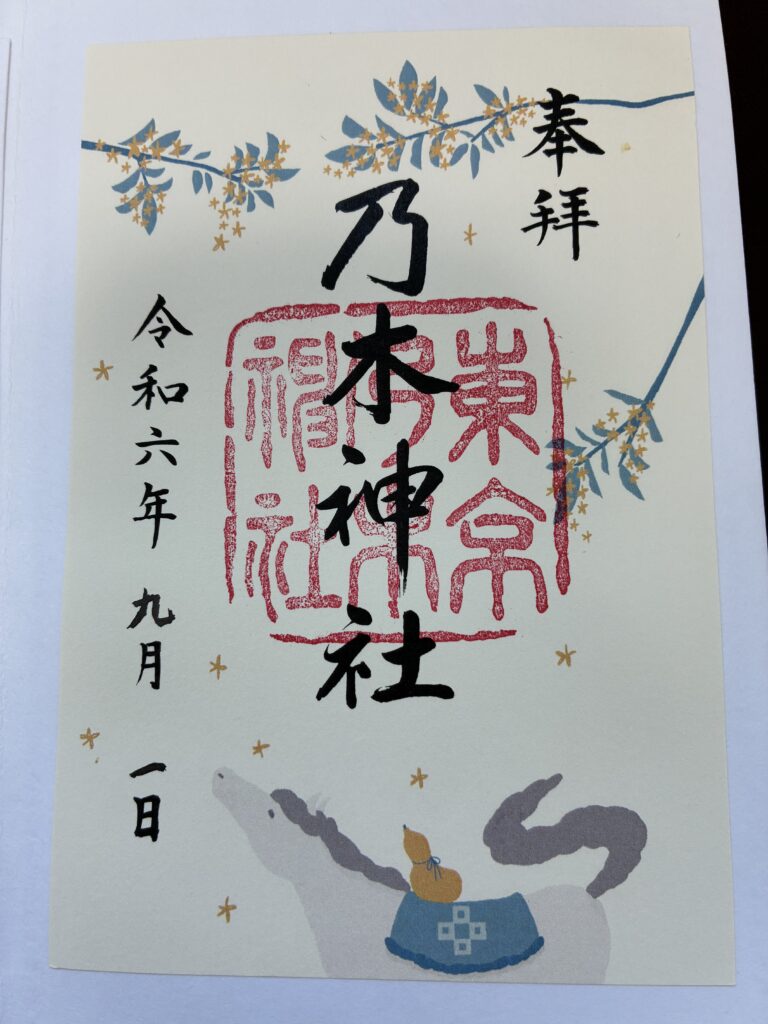 奉拝
乃木神社
東京
令和六年 九月 一日